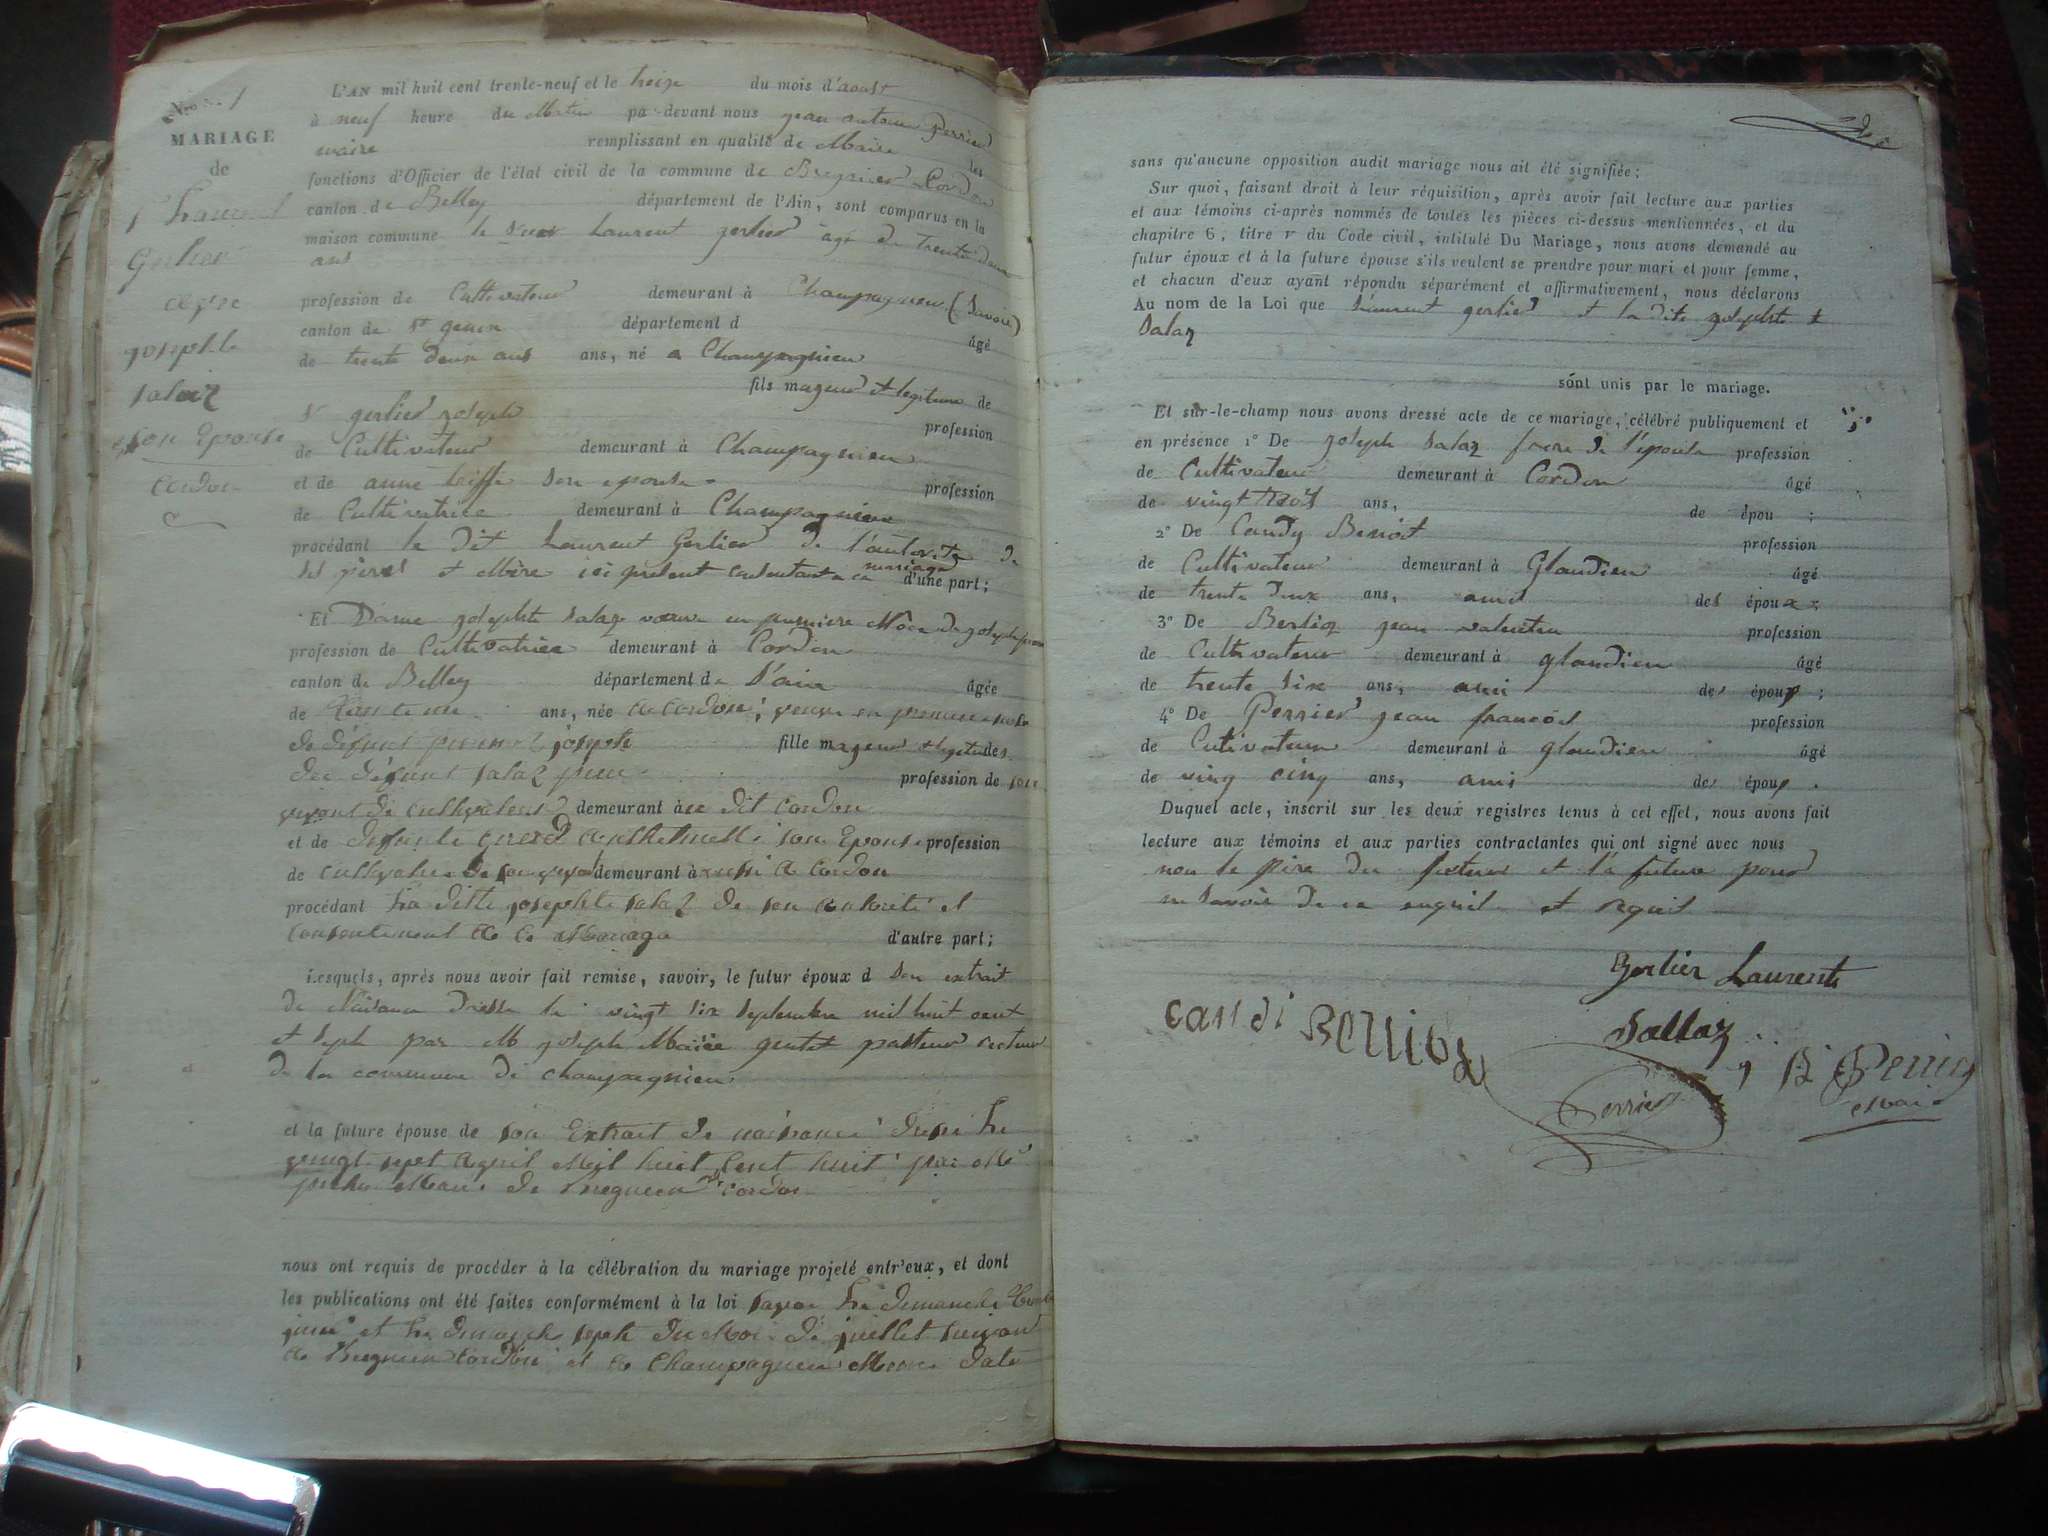 Nro 1
MARIAGE
de
Laurent
Gerlier
avec
josephte
salaz
son Epouse
Cordon
L'AN mil huit cent trente-neuf et le treize du mois d'aoust
à neuf heure du Matin par-devant nous jean antoine Perrier
maire remplissant en qualité de Maire les
fonctions d'Officier de l'état civil de la commune de Bregnier Cordon
canton de Belley département de l'Ain, sont comparus en la
maison commune le sieur Laurent gerlier agé de trente deux
ans
profession de Cultivateur demeurant à Champagneux (Savoie)
canton de St genix département d
de trente deux ans ans, né a Champagnieu âgé
fils mageur et legitime de
Sr gerlier joseph profession
de Cultivateur demeurant à Champagnieu
et de anne son epouse profession
de Cultivatrice demeurant à Champagnieu
procédant le dit Laurent Gerlier de l'autorité de
ses pères et Mère ici présent consentant a ce mariage d'une part;
Et Dame josephte salaz veuve en premiere Nôce de joseph
profession de Cultivatrice demeurant à Cordon
canton de Belley département de l'ain âgée
de trente un ans, née a Cordon; veuve en premiere noce
de défunt joseph fille mageur et legitime des
du défunt salaz profession de son
vivant de cultivateur demeurant à au dit Cordon
et de defunte son Epouse profession
de cultivatrice de son vivant demeurant à aussi a Cordon
procédant La ditte josephte salaz de son autorité et
consentement a ce Mariage d'autre part;
Lesquels, après nous avoir fait remise, savoir, le futur époux d son extrait
de Naisance Dressé le vingt six septembre mil huit cent
et sept par M joseph Marie pasteur recteur
de la commune de champagnieu
et la future épouse de son Extrait de naisance dressé Le
vingt sept avril Mil huit Cent huit par Mr
Maire de Bregnieu et Cordon
nous ont requis de procéder à la célébration du mariage projeté entr'eux, et dont
les publications ont été faites conformément à la loi savoir Le dimanche trente
juin et Le dimanche sept du Mois de juillet suivant
a Bregnieu Cordon et a Champagneu Meme date
sans qu'aucune opposition audit mariage nous ait été signifiée;
Sur quoi, faisant droit à leur réquisition, après avoir fait lecture aux parties
et aux témoins ci-après nommés de toutes les pièces ci-dessus mentionnées, et du
chapitre 6, titre v du Code civil, intitulé Du Mariage, nous avons demandé au
futur époux et à la future épouse s'ils veulent se prendre pour mari et pour femme,
et chacun d'eux ayant répondu séparément et affirmativement, nous déclarons
Au nom de la Loi que Laurent gerlier et la dite josephte
Salaz
sont unis par le mariage.
Et sur-le-champ nous avons dressé acte de ce mariage, célébré publiquement et
en présence 1° De joseph salaz frere de l'epouse profession
de Cultivateur demeurant à Cordon âgé
de vingt trois ans, de épou ;
2° De Candy Benoit profession
de Cultivateur demeurant à Glandieu âgé
de trente deux ans, ami des époux ;
3° De Berlioz jean valentin profession
de Cultivateur demeurant à glandieu âgé
de trente six ans, ami des époux ;
4° De Perrier jean francois profession
de Cutivateur demeurant à glandieu âgé
de ving cinq ans, ami des époux .
Duquel acte, inscrit sur les deux registres tenus à cet effet, nous avons fait
lecture aux témoins et aux parties contractantes qui ont signé avec nous
non le père du futur et la future pour
ne savoir de ce enquit et requit
Gerlier Laurent
candi Berlioz Sallaz
Perrier
Maire